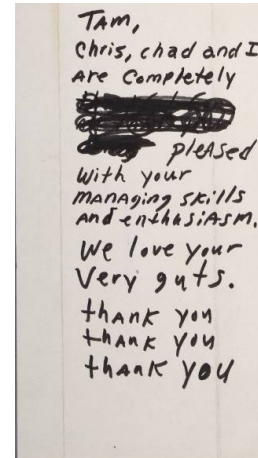 TAM,
Chris, chad and I
Are Completely
pleased
With your
managing skills
and enthusiasm.
We love your
Very guts.
thank you
thank you
thank you